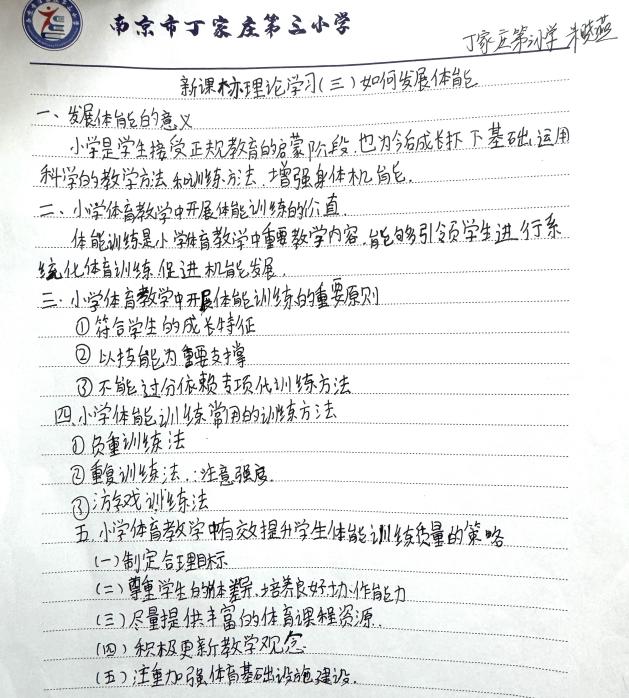 南京市丁家庄第三小学
丁家庄第三小学 朱晓燕
新课标理论学习(三)如何发展体能
一、发展体能的意义
小学是学生接受正规教育的启蒙阶段,也为今后成长扑下基础,运用
科学的教学方法和训练方法,增强身体机能.
二、小学体育教学中开展体能训练的价值.
体能训练是小学体育教学中重要教学内容,能够引领学生进行系
统化体育训练,促进机能发展.
三、小学体育教学中开展体能训练的重要原则
①符合学生的成长特征
②以技能为重要支撑
③不能过分依赖专项化训练方法
四、小学体能训练常用的训练方法
①负重训练法
②重复训练法.:注意强度.
③游戏训练法
五.小学体育教学中有效提升学生体能训练质量的策略
(一)制定合理目标
(二)尊重学生的个体差异.培养良好协作能力
(三)尽量提供丰富的体育课程资源.
(四)积极更新教学观念.
(五)注重加强体育基础设施建设.